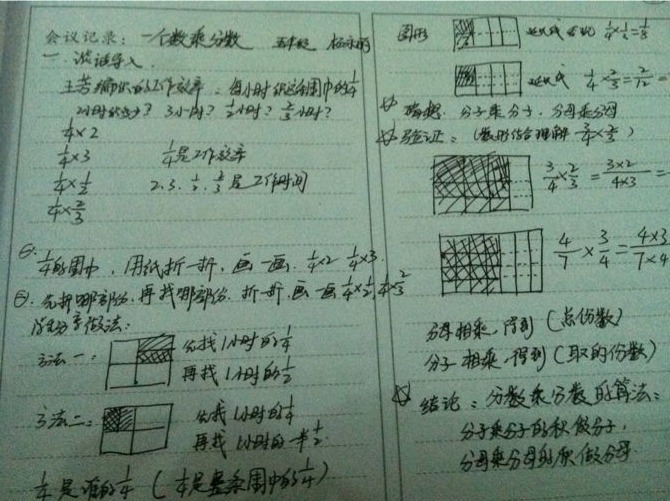 会议记录：一个数乘分数 五年级
一、谈话导入
王芳编织的工作效率：每小时织这条围巾的1/4
2小时织多少？3小时？1/2小时？2/3小时？
1/4×2
1/4×3 1/4是工作效率
1/4×1/2 2、3、1/2、2/3是工作时间
1/4×2/3
1/4的围巾，用纸折一折，画一画，1/4×2 1/4×3
先折哪部分，再找哪部分，折一折，画一画1/4×1/2，1/4×2/3
做法：
方法一： 先找1小时的1/4
再找1小时的1/2
方法二： 先找1小时的1/4
再找1小时的一半1/2
1/4是谁的1/4（1/4是整条围巾的1/4）
图形 1/4×1/2=1/8
1/4×2/3=2/12=
猜想：分子乘分子，分母乘分母
验证：（数形结合理解 3/4×2/3）
3/4×2/3=3×2/4×3=
4/7×3/4=4×3/7×4
分母相乘，得到（总份数）
分子相乘，得到（取的份数）
☆ 结论：分数乘分数的算法：
分子乘分子的积做分子，
分母乘分母的积做分母